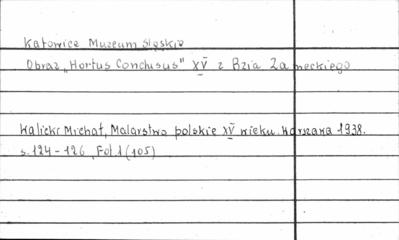 Katowice Muzeum Śląskie
Obraz „Hortus Conclusus" XV z Bzia Zameckiego
Walicki Michał, Malarstwo polskie XV wieku. Warszawa 1938.
s. 124-126, Fot. 1 (105)